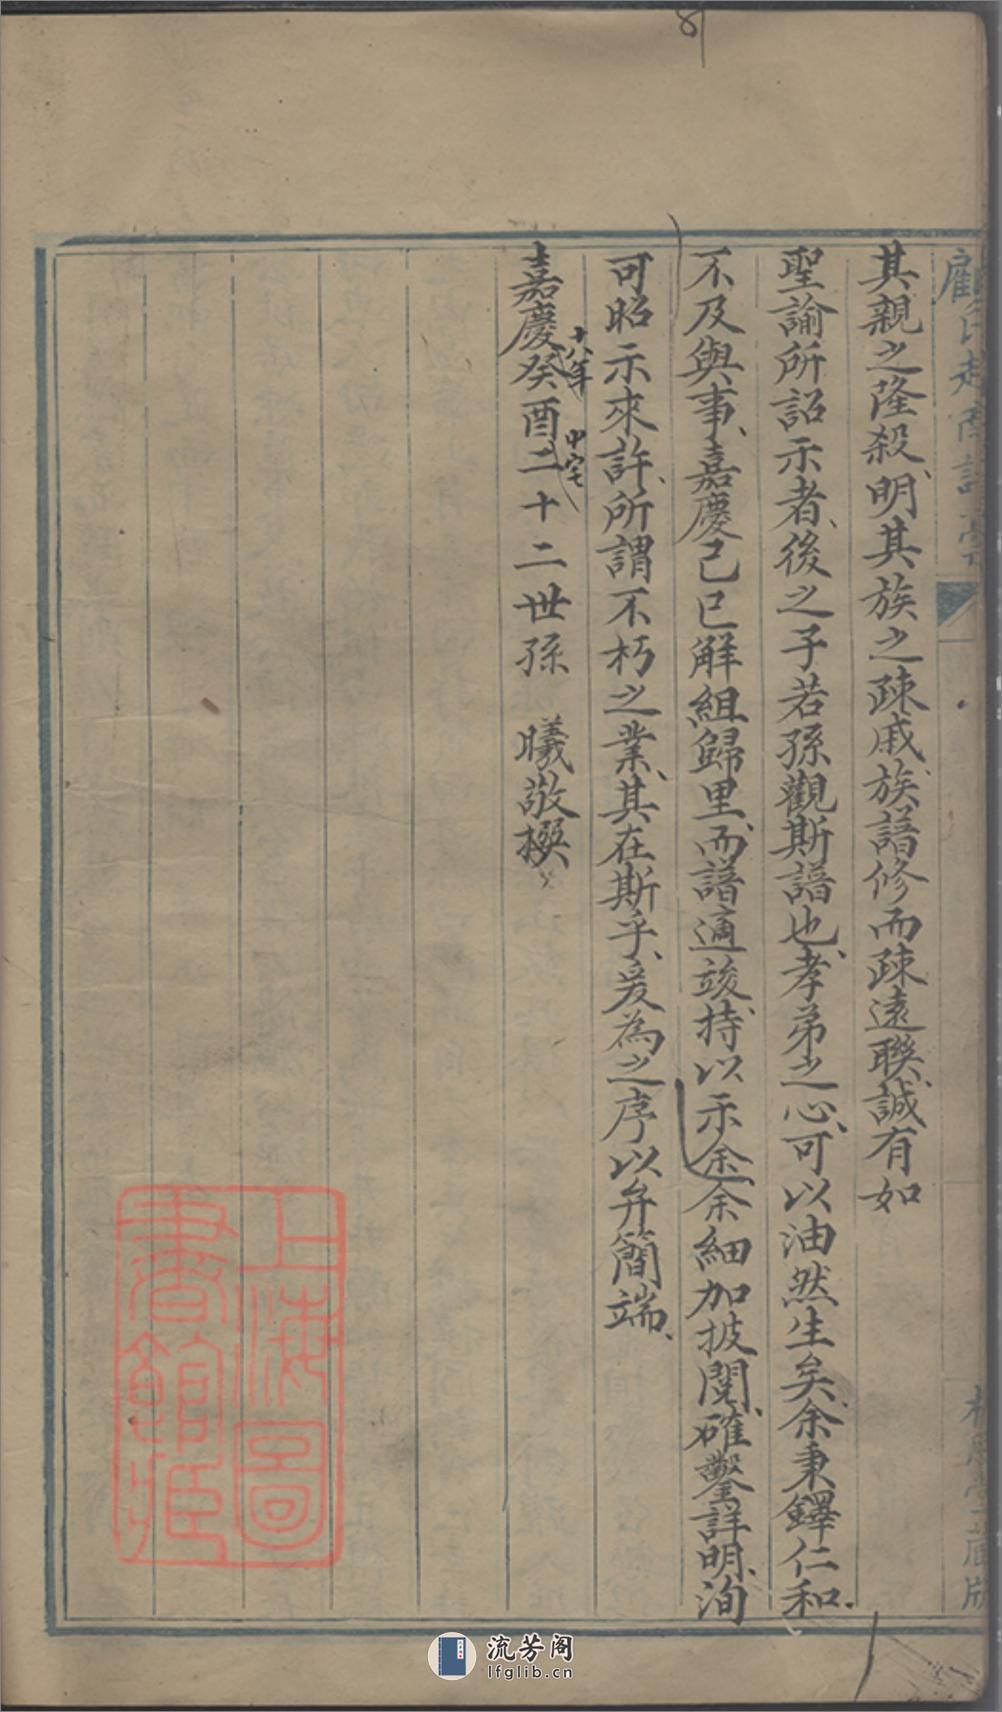 其親之隆殺、明其族之疎戚、族譜修而疎遠聯、誠有如
聖諭所詔示者、後之子若孫觀斯譜也、孝弟之心、可以油然生矣、余秉鐸仁和、
不及與事、嘉慶己巳解組歸里、而譜適竣、持以示余、余細加披閱、確鑿詳明、洵
可昭示來許、所謂不朽之業、其在斯乎、爰為之序、以弁簡端、
十八年
嘉慶癸酉二十二世孫 曦敬撰
上海圖
書館藏
流芳阁
lfglib.cn